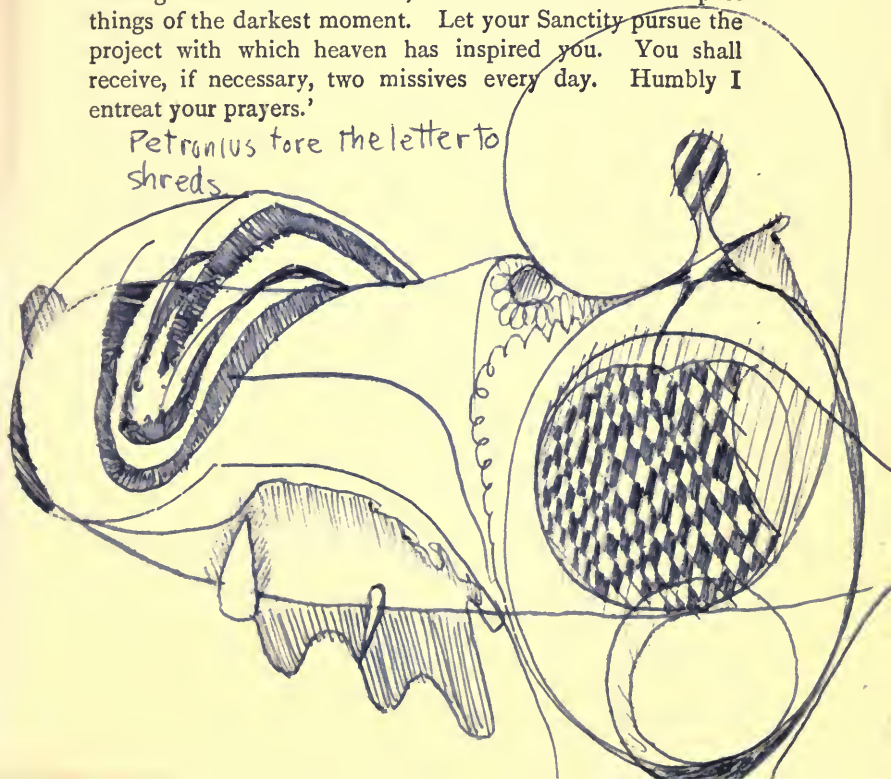 things of the darkest moment. Let your Sanctity pursue the
project with which heaven has inspired you. You shall
receive, if necessary, two missives every day. Humbly I
entreat your prayers.'
Petronius tore the letter to
shreds.